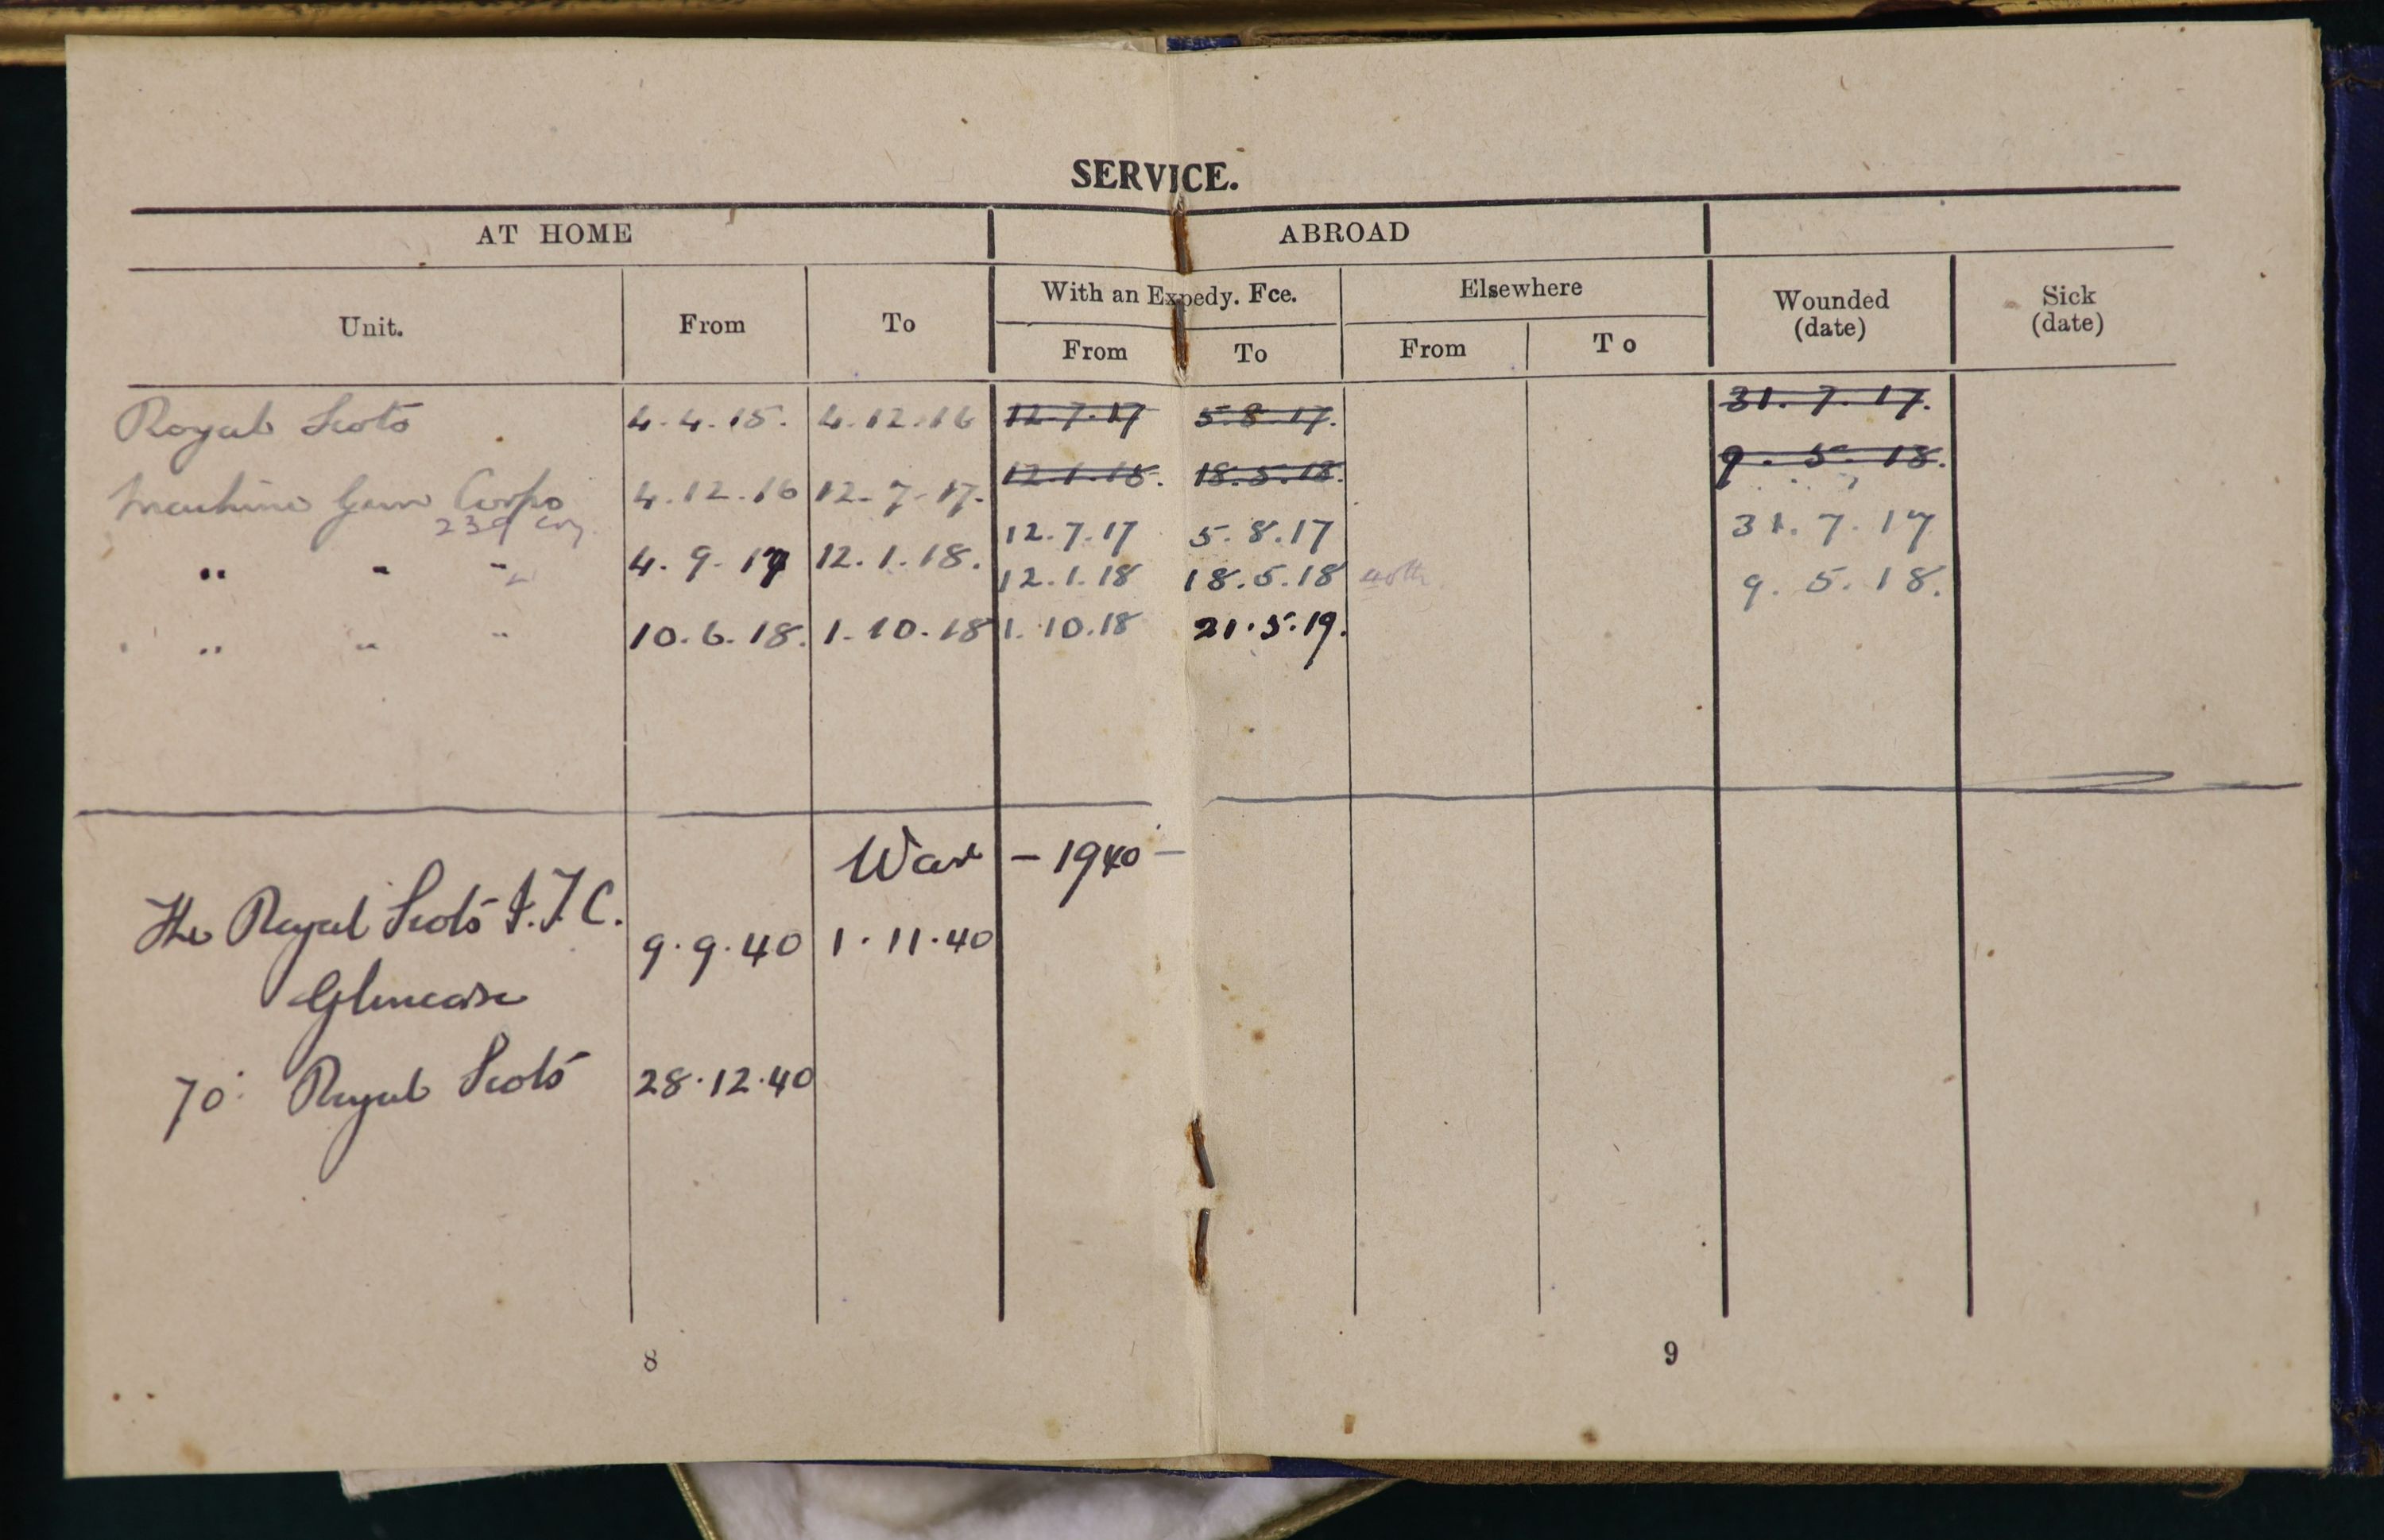 SERVICE.
AT HOME ABROAD
Unit. From To With an Expedy. Fce. From To Elsewhere From To Wounded (date) Sick (date)
Royal Scots 4.4.15. 4.12.16 12.7.17 5.8.17. 31.7.17.
12.1.18. 18.5.18. 9.5.18.
Machine Gun Corps 4.12.16 12.7.17.
239 Coy. 12.7.17 5.8.17 31.7.17
" " " 4.9.17 12.1.18. 12.1.18 18.5.18 9.5.18.
" " " 10.6.18. 1.10.18 1.10.18 21.5.19.
War - 1940 -
The Royal Scots I.T.C. 9.9.40 1.11.40
Glencorse
70: Royal Scots 28.12.40
8 9